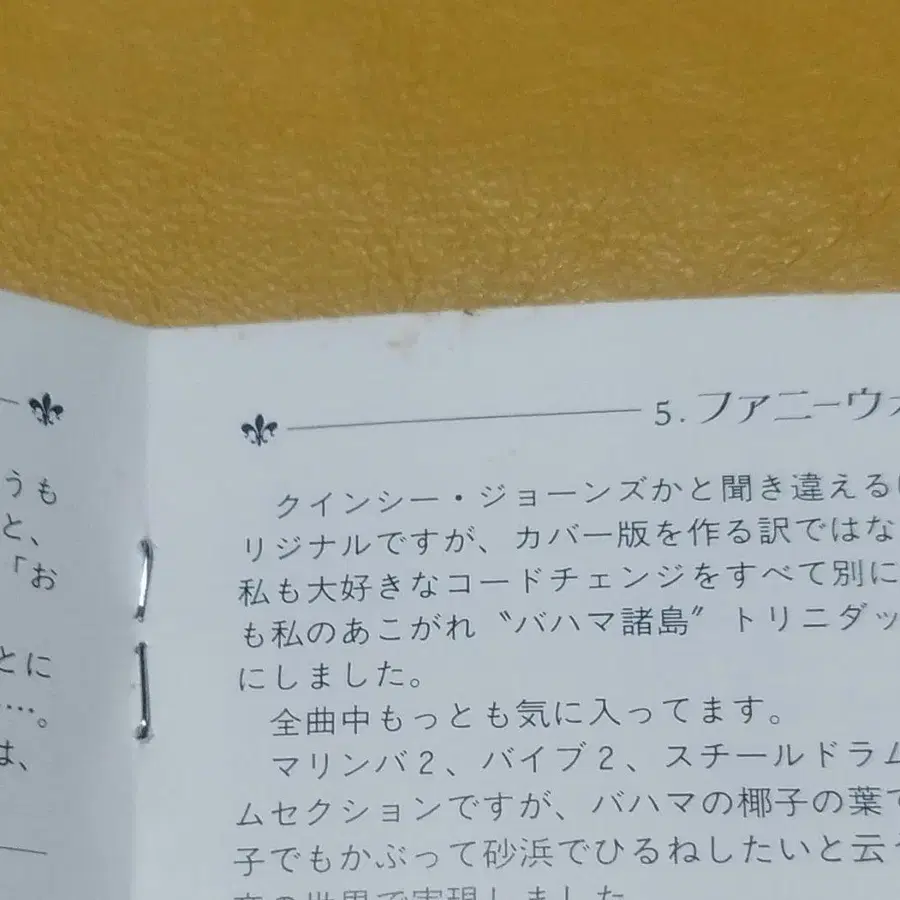 うも
と、
「お
とに
…。
は、
5.ファニーウォ
クインシー・ジョーンズかと聞き違える
リジナルですが、カバー版を作る訳ではな
私も大好きなコードチェンジをすべて別に
も私のあこがれ〝バハマ諸島〟トリニダッ
にしました。
全曲中もっとも気に入ってます。
マリンバ2、バイブ2、スチールドラム
ムセクションですが、バハマの椰子の葉で
子でもかぶって砂浜でひるねしたいと云う
音の世界で実現しました